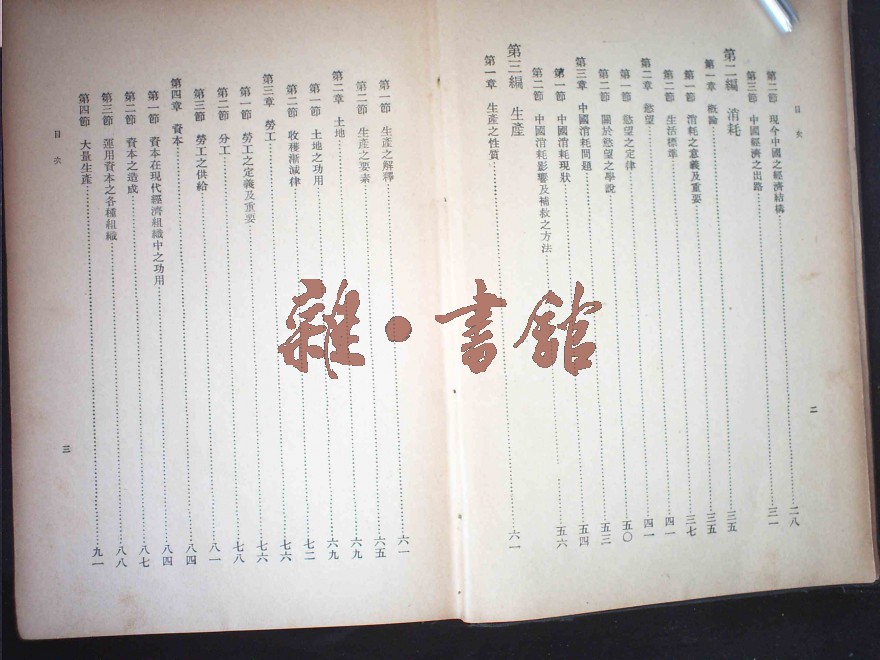 目次
二
第二節 現今中國之經濟結構……二八
第三節 中國經濟之出路……三一
第二編 消耗
第一章 概論……三五
第一節 消耗之意義及重要……三五
第二節 生活標準……三七
第二章 慾望……四一
第一節 慾望之定律……四一
第二節 關於慾望之學說……五〇
第三章 中國消耗問題……五三
第一節 中國消耗現狀……五四
第二節 中國消耗影響及補救之方法……五六
第三編 生產
第一章 生產之性質……六一
第一節 生產之解釋……六一
第二節 生產之要素……六五
第二章 土地……六九
第一節 土地之功用……六九
第二節 收穫漸減律……七二
第三章 勞工……七六
第一節 勞工之定義及重要……七六
第二節 分工……七八
第三節 勞工之供給……八一
第四章 資本……八四
第一節 資本在現代經濟組織中之功用……八四
第二節 資本之造成……八七
第三節 運用資本之各種組織……八八
第四節 大量生產……九一
目次
三
雜·書館